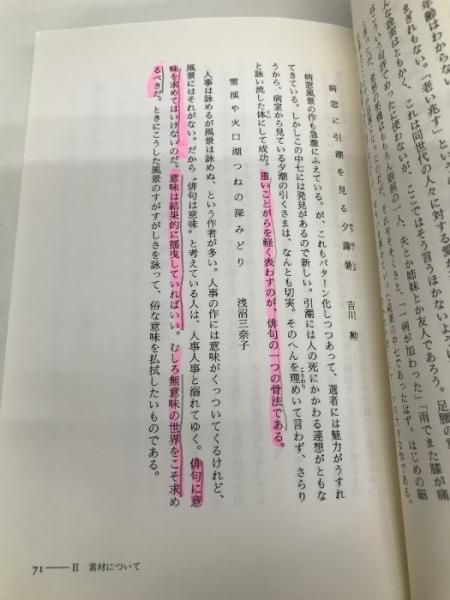 年齢はわからない
まぎれもない。「老い兆す」とい
な、これは同世代の人々に対する愛
病窓に引潮を見る夕薄暑　吉川　勲
病窓風景の作も急激にふえている。が、これもパターン化しつつあって、選者には魅力がうすれ
てきている。しかしこの中七には発見があるので新しい。引潮には人の死にかかわる連想がともな
うから、病室から見ている夕潮の引くさまは、なんとも切実。そのへんを理めいて言わず、さらり
と詠い流した体にして成功。重いことがらを軽く表わすのが、俳句の一つの骨法である。
雪渓や火口湖つねの深みどり　浅沼三奈子
人事は詠めるが風景は詠めぬ、という作者が多い。人事の作には意味がくっついてくるけれど、
風景にはそれがない。だから“俳句は意味”と考えている人は、人事人事と溺れてゆく。俳句に意
味を求めてはいけないのだ。意味は結果的に揺曳していればいい。むしろ無意味の世界をこそ求め
るべきだ。ときにこうした風景のすがすがしさを詠って、俗な意味を払拭したいものである。
71──II　素材について